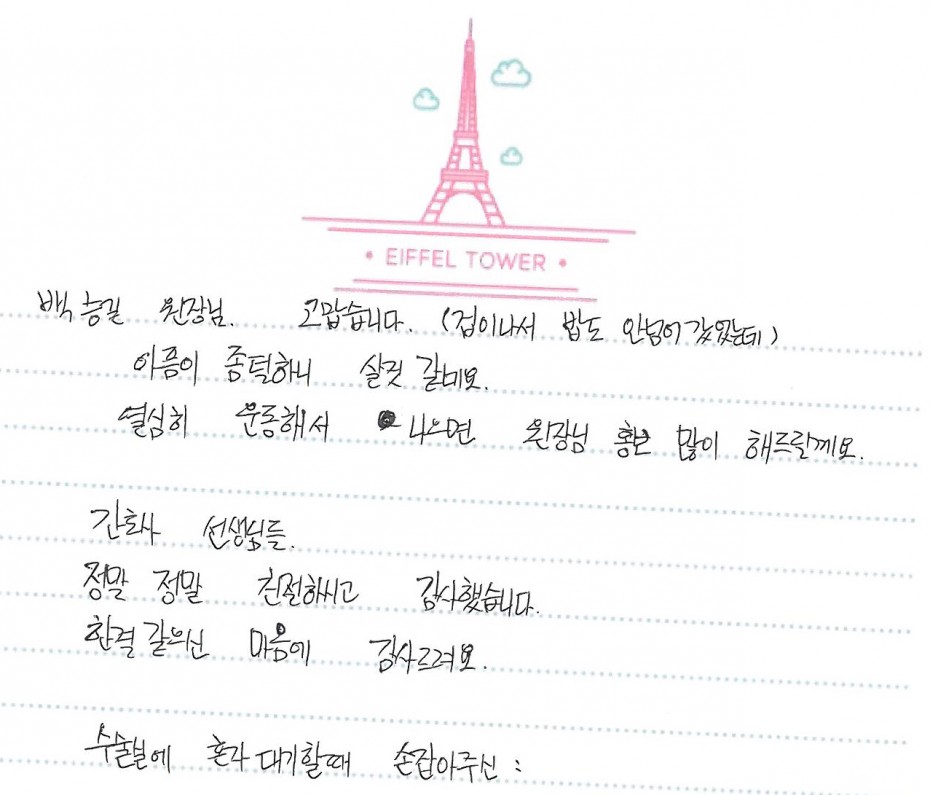 • EIFFEL TOWER •
백승길 원장님. 고맙습니다. (겁이나서 밥도 안넘어 갔었는데)
아픔이 종털하니 살것 같네요.
열심히 운동해서 나으면 원장님 홍보 많이 해드릴께요.
간호사 선생님들.
정말 정말 친절하시고 감사했습니다.
한결 같으신 마음에 감사드려요.
수술실에 혼자 대기할때 손잡아주신 :